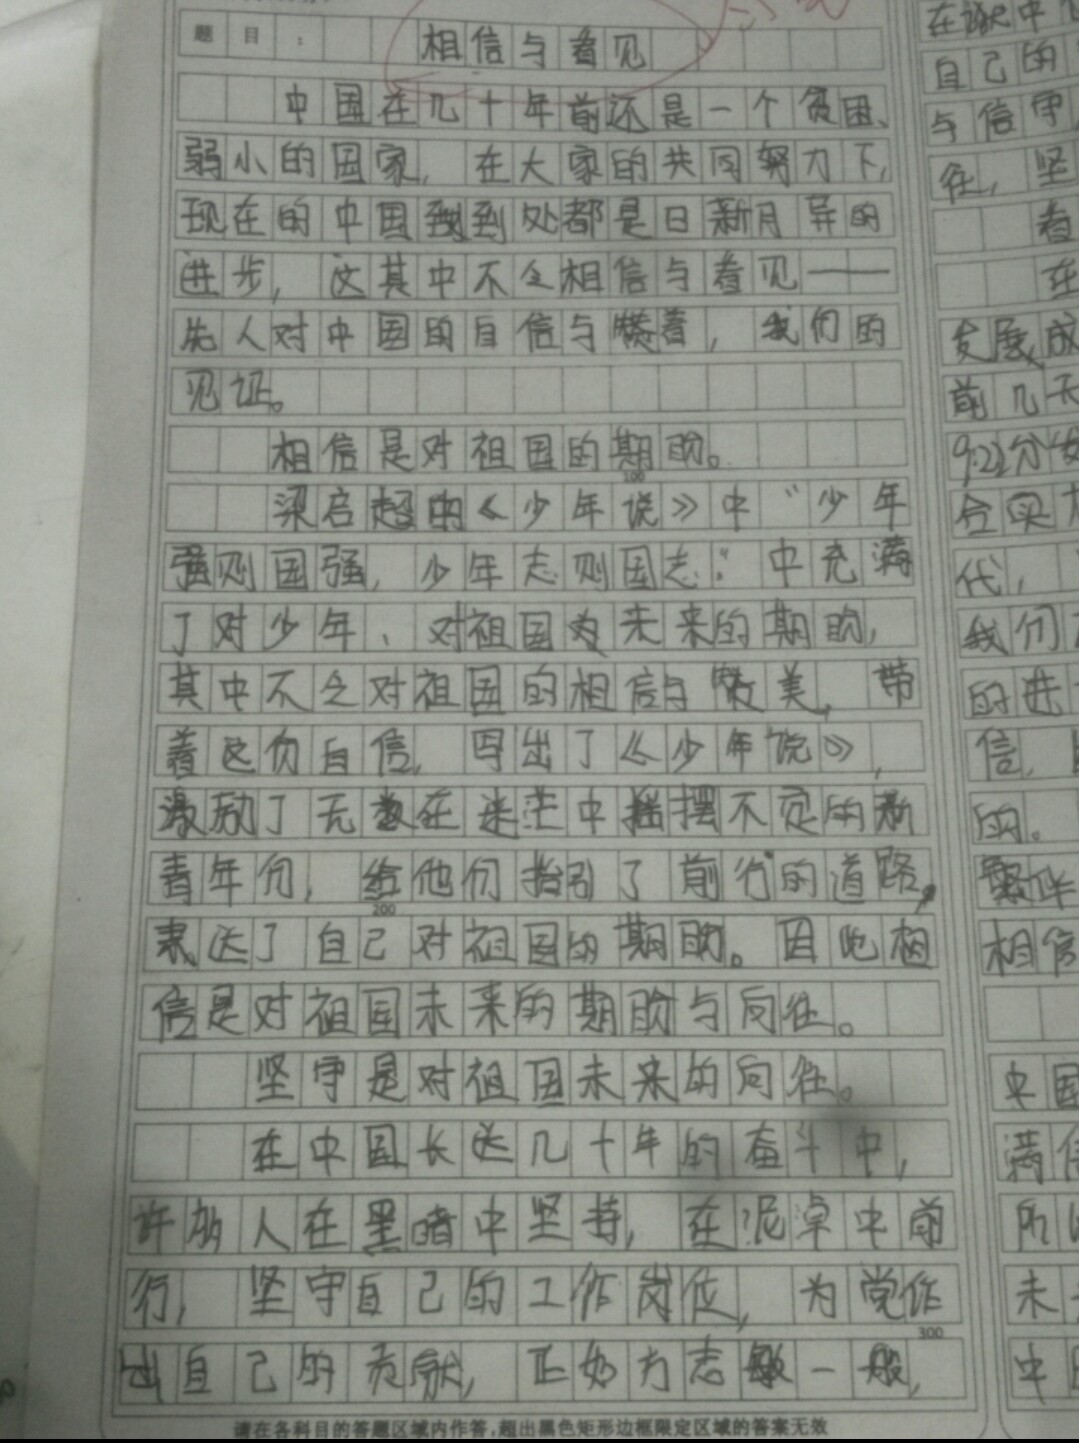 题目： 相信与看见
中国在几十年前还是一个贫困、
弱小的国家，在大家的共同努力下，
现在的中国到处都是日新月异的
进步，这其中不乏相信与看见——
先人对中国的自信与 着，我们的
见证。
相信是对祖国的期盼。
100
梁启超的《少年说》中"少年
强则国强，少年志则国志"中充满
了对少年、对祖国 未来的期盼，
其中不乏对祖国的相信与赞美，带
着这份自信，写出了《少年说》，
激励了无数在迷茫中摇摆不定的新
青年们，给他们指引了前行的道路，
200
表达了自己对祖国的期盼。因此相
信是对祖国未来的期盼与向往。
坚守是对祖国未来的向往。
在中国长达几十年的奋斗中，
许多人在黑暗中坚持，在泥 中前
行，坚守自己的工作岗位，为党作
300
出自己的贡献，正如方志敏一般，
请在各科目的答题区域内作答，超出黑色矩形边框限定区域的答案无效
在 中
自己的
与信守
往，坚
看
在
发展成
前几天
9:22分
会实
代，
我们
的进
信，
的。
相信
中国
满信
所以
未
中